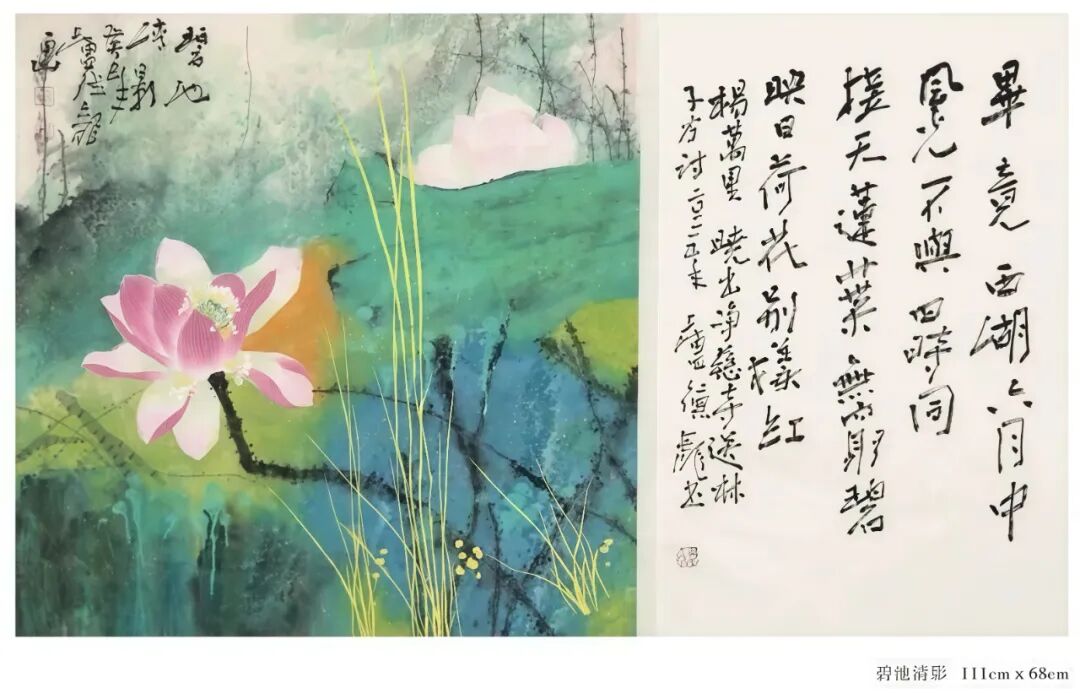 碧池
清影
畫
畢竟西湖六月中
風光不與四時同
接天蓮葉無窮碧
映日荷花別樣紅
楊萬里 曉出淨慈寺送林
子方詩
碧池清影 111cm x 68cm